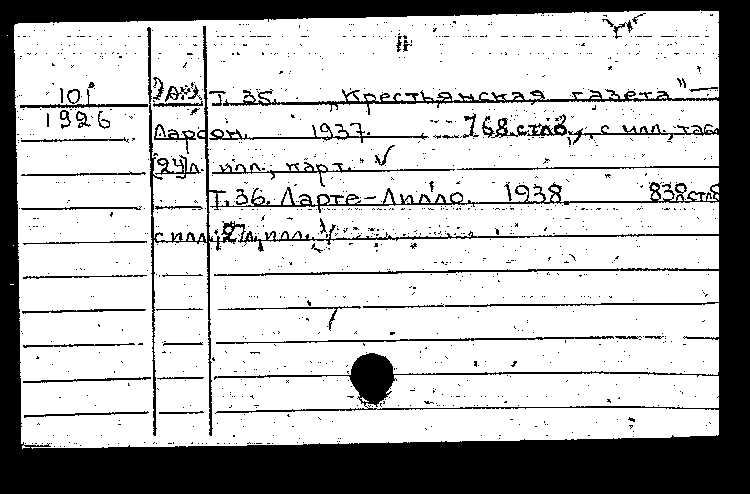 101 Т. 35. „Крестьянская газета" —
1926 Ларсон. 1937. 768 стлб., с илл., таб
[24]л. илл., карт. √
Т. 36. Ларте-Лилло. 1938. 838 стлб
с илл.; 27л. илл. √